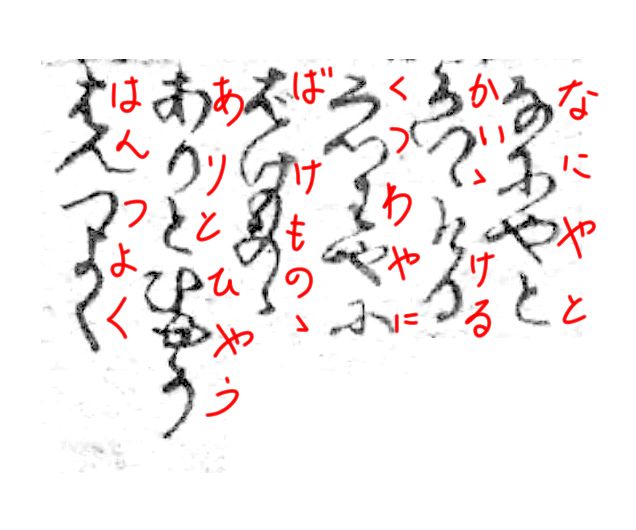 なにやと
かいゝける
くつわやに
ばけものゝ
ありとひやう
はんつよく